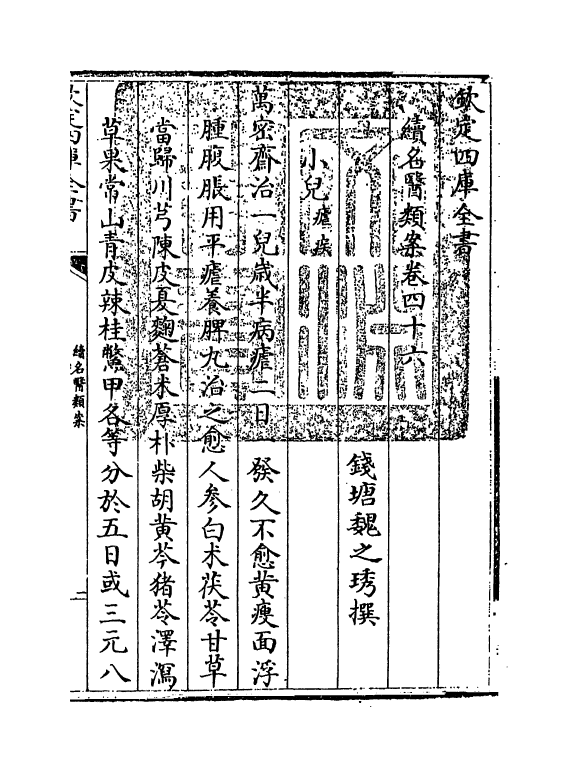 欽定四庫全書
續名醫類案卷四十六
錢塘魏之琇撰
小兒瘧疾
萬密齋治一兒歲半病瘧二日一發久不愈黃瘦面浮
腫腹脹用平瘧養脾丸治之愈人參白朮茯苓甘草
當歸川芎陳皮夏麴蒼米厚朴柴胡黃芩猪苓澤瀉
草果常山青皮辣桂鱉甲各等分於五日或三元八
欽定四庫全書
續名醫類案